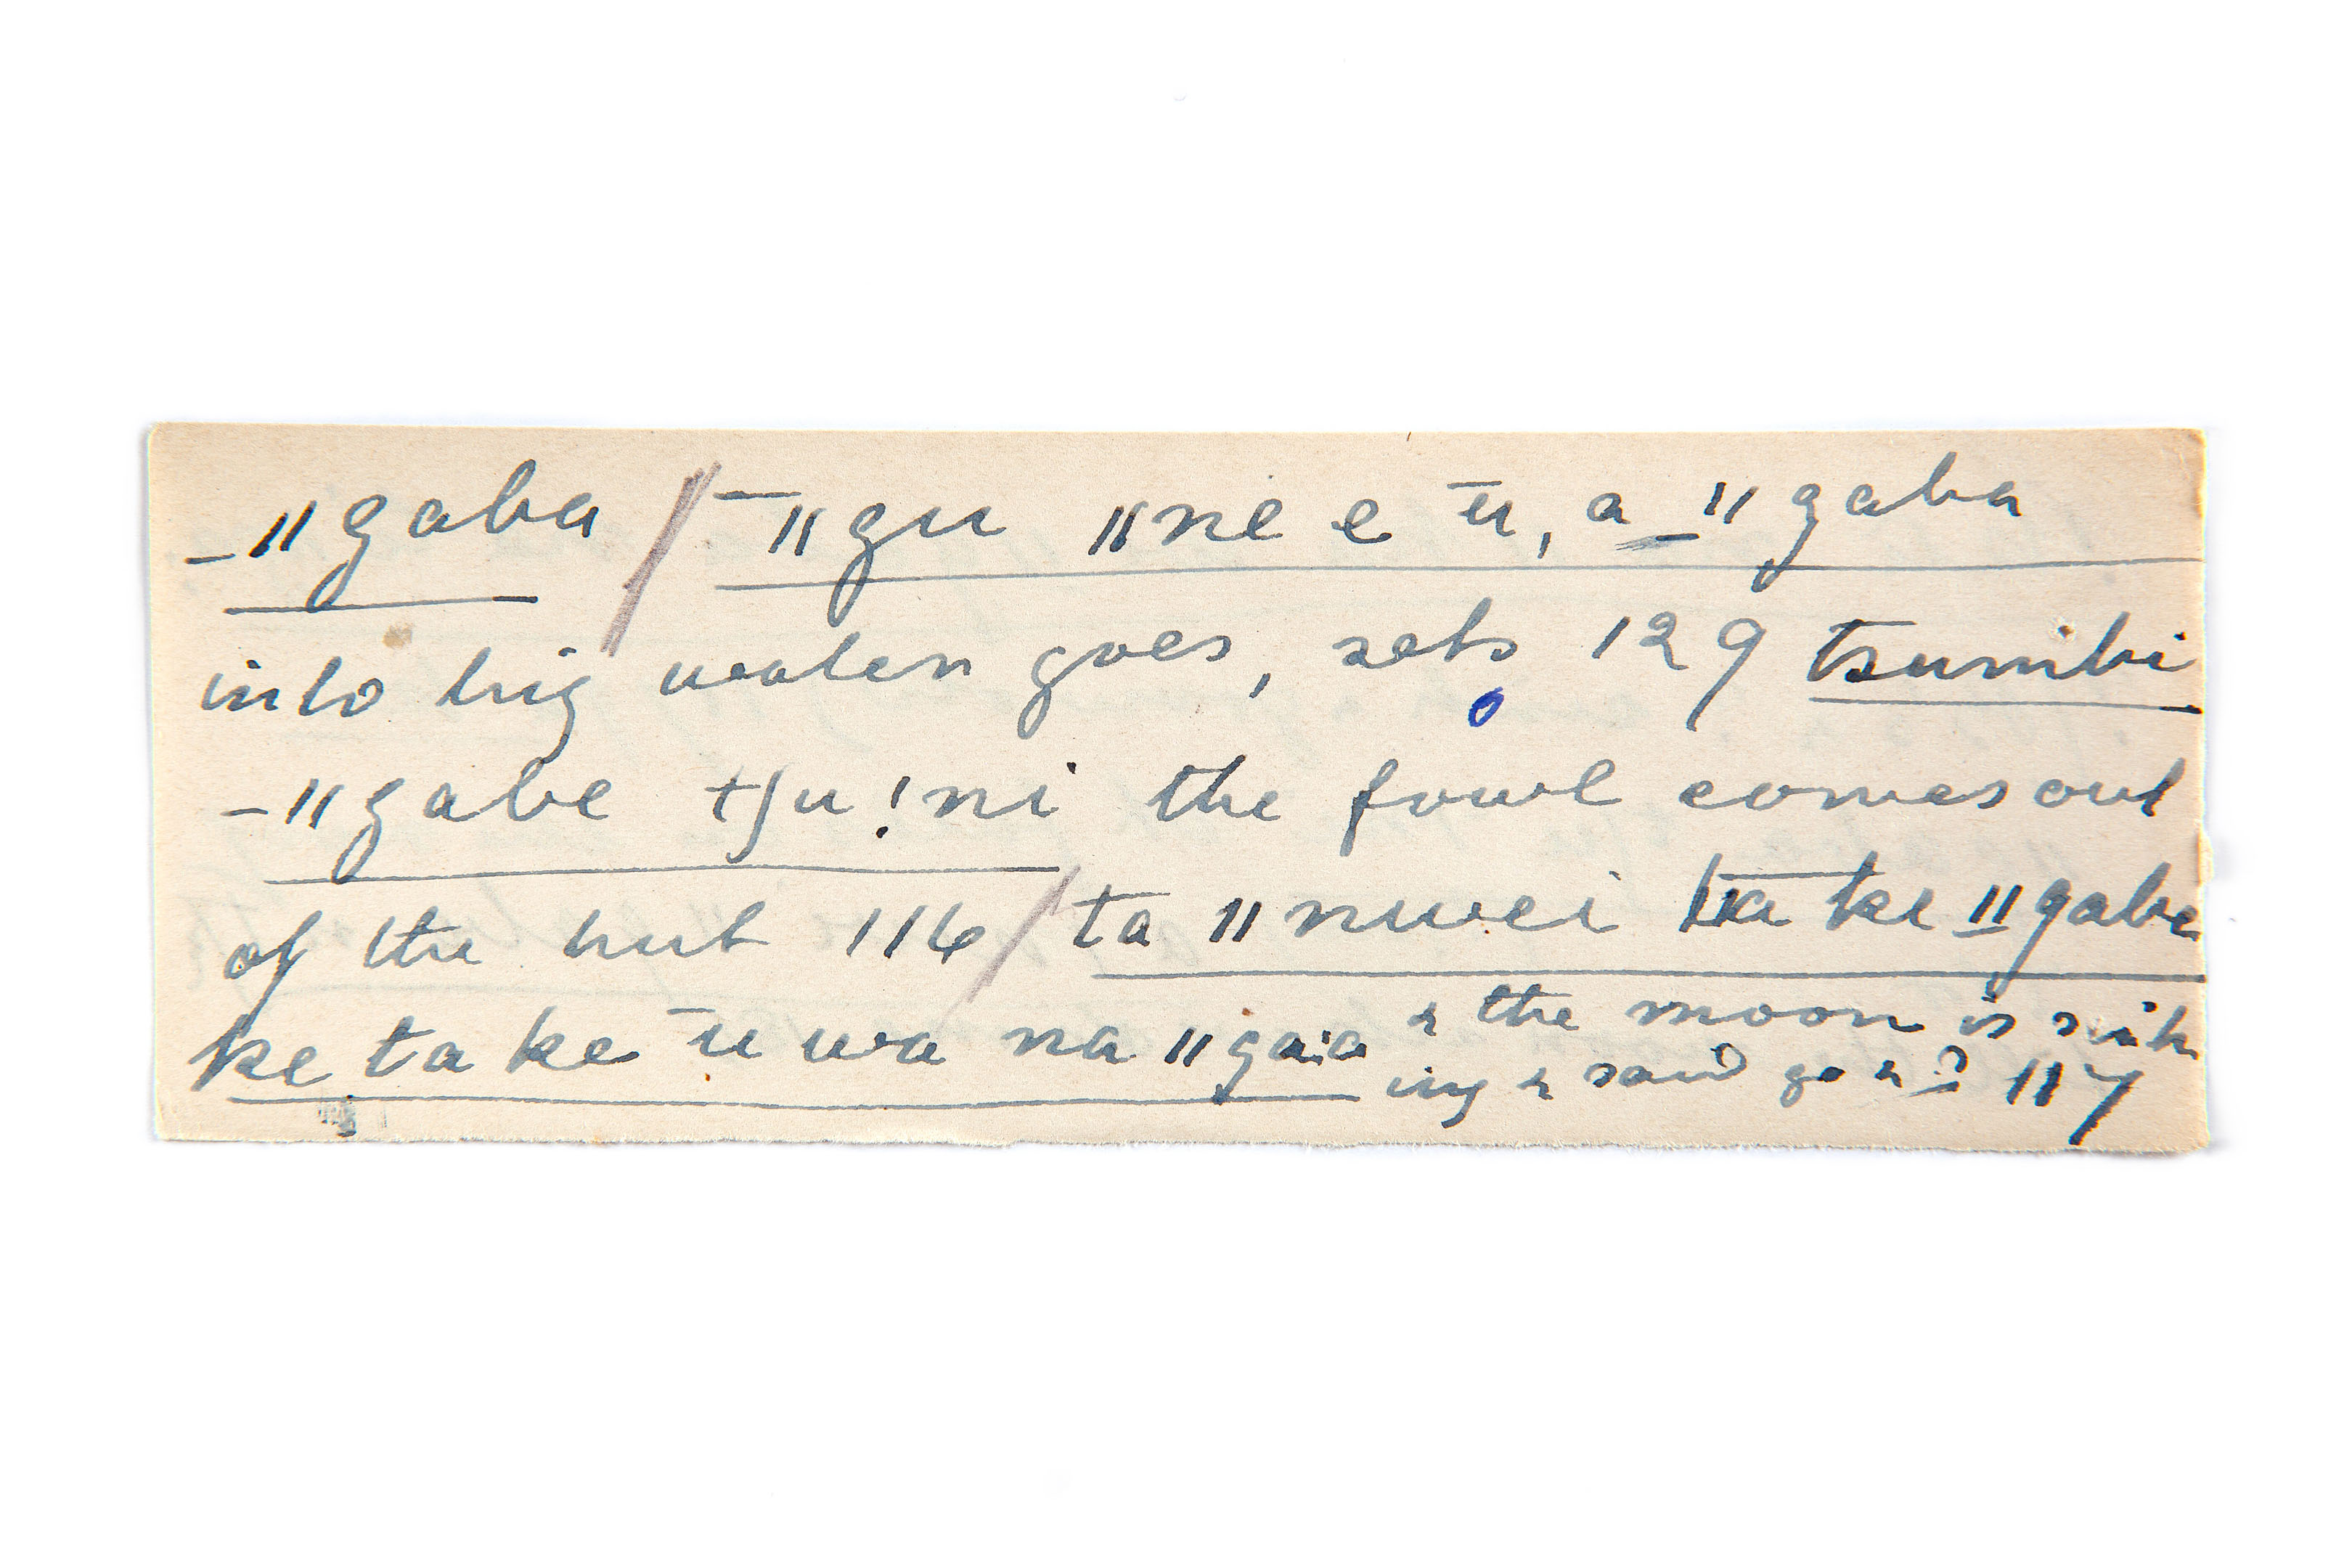 _ǁgaba / ‾ǁgu ǁne e ū, a _ǁgaba
into big water goes, sets 129 tsumbi
-ǁgabe tʃu!ni the fowl comes out
of the hut 116 / ta ǁnwei ta ke ǁgabe
ke ta ke ū wa na ǁgaia & the moon is sink
ing & said go & 117